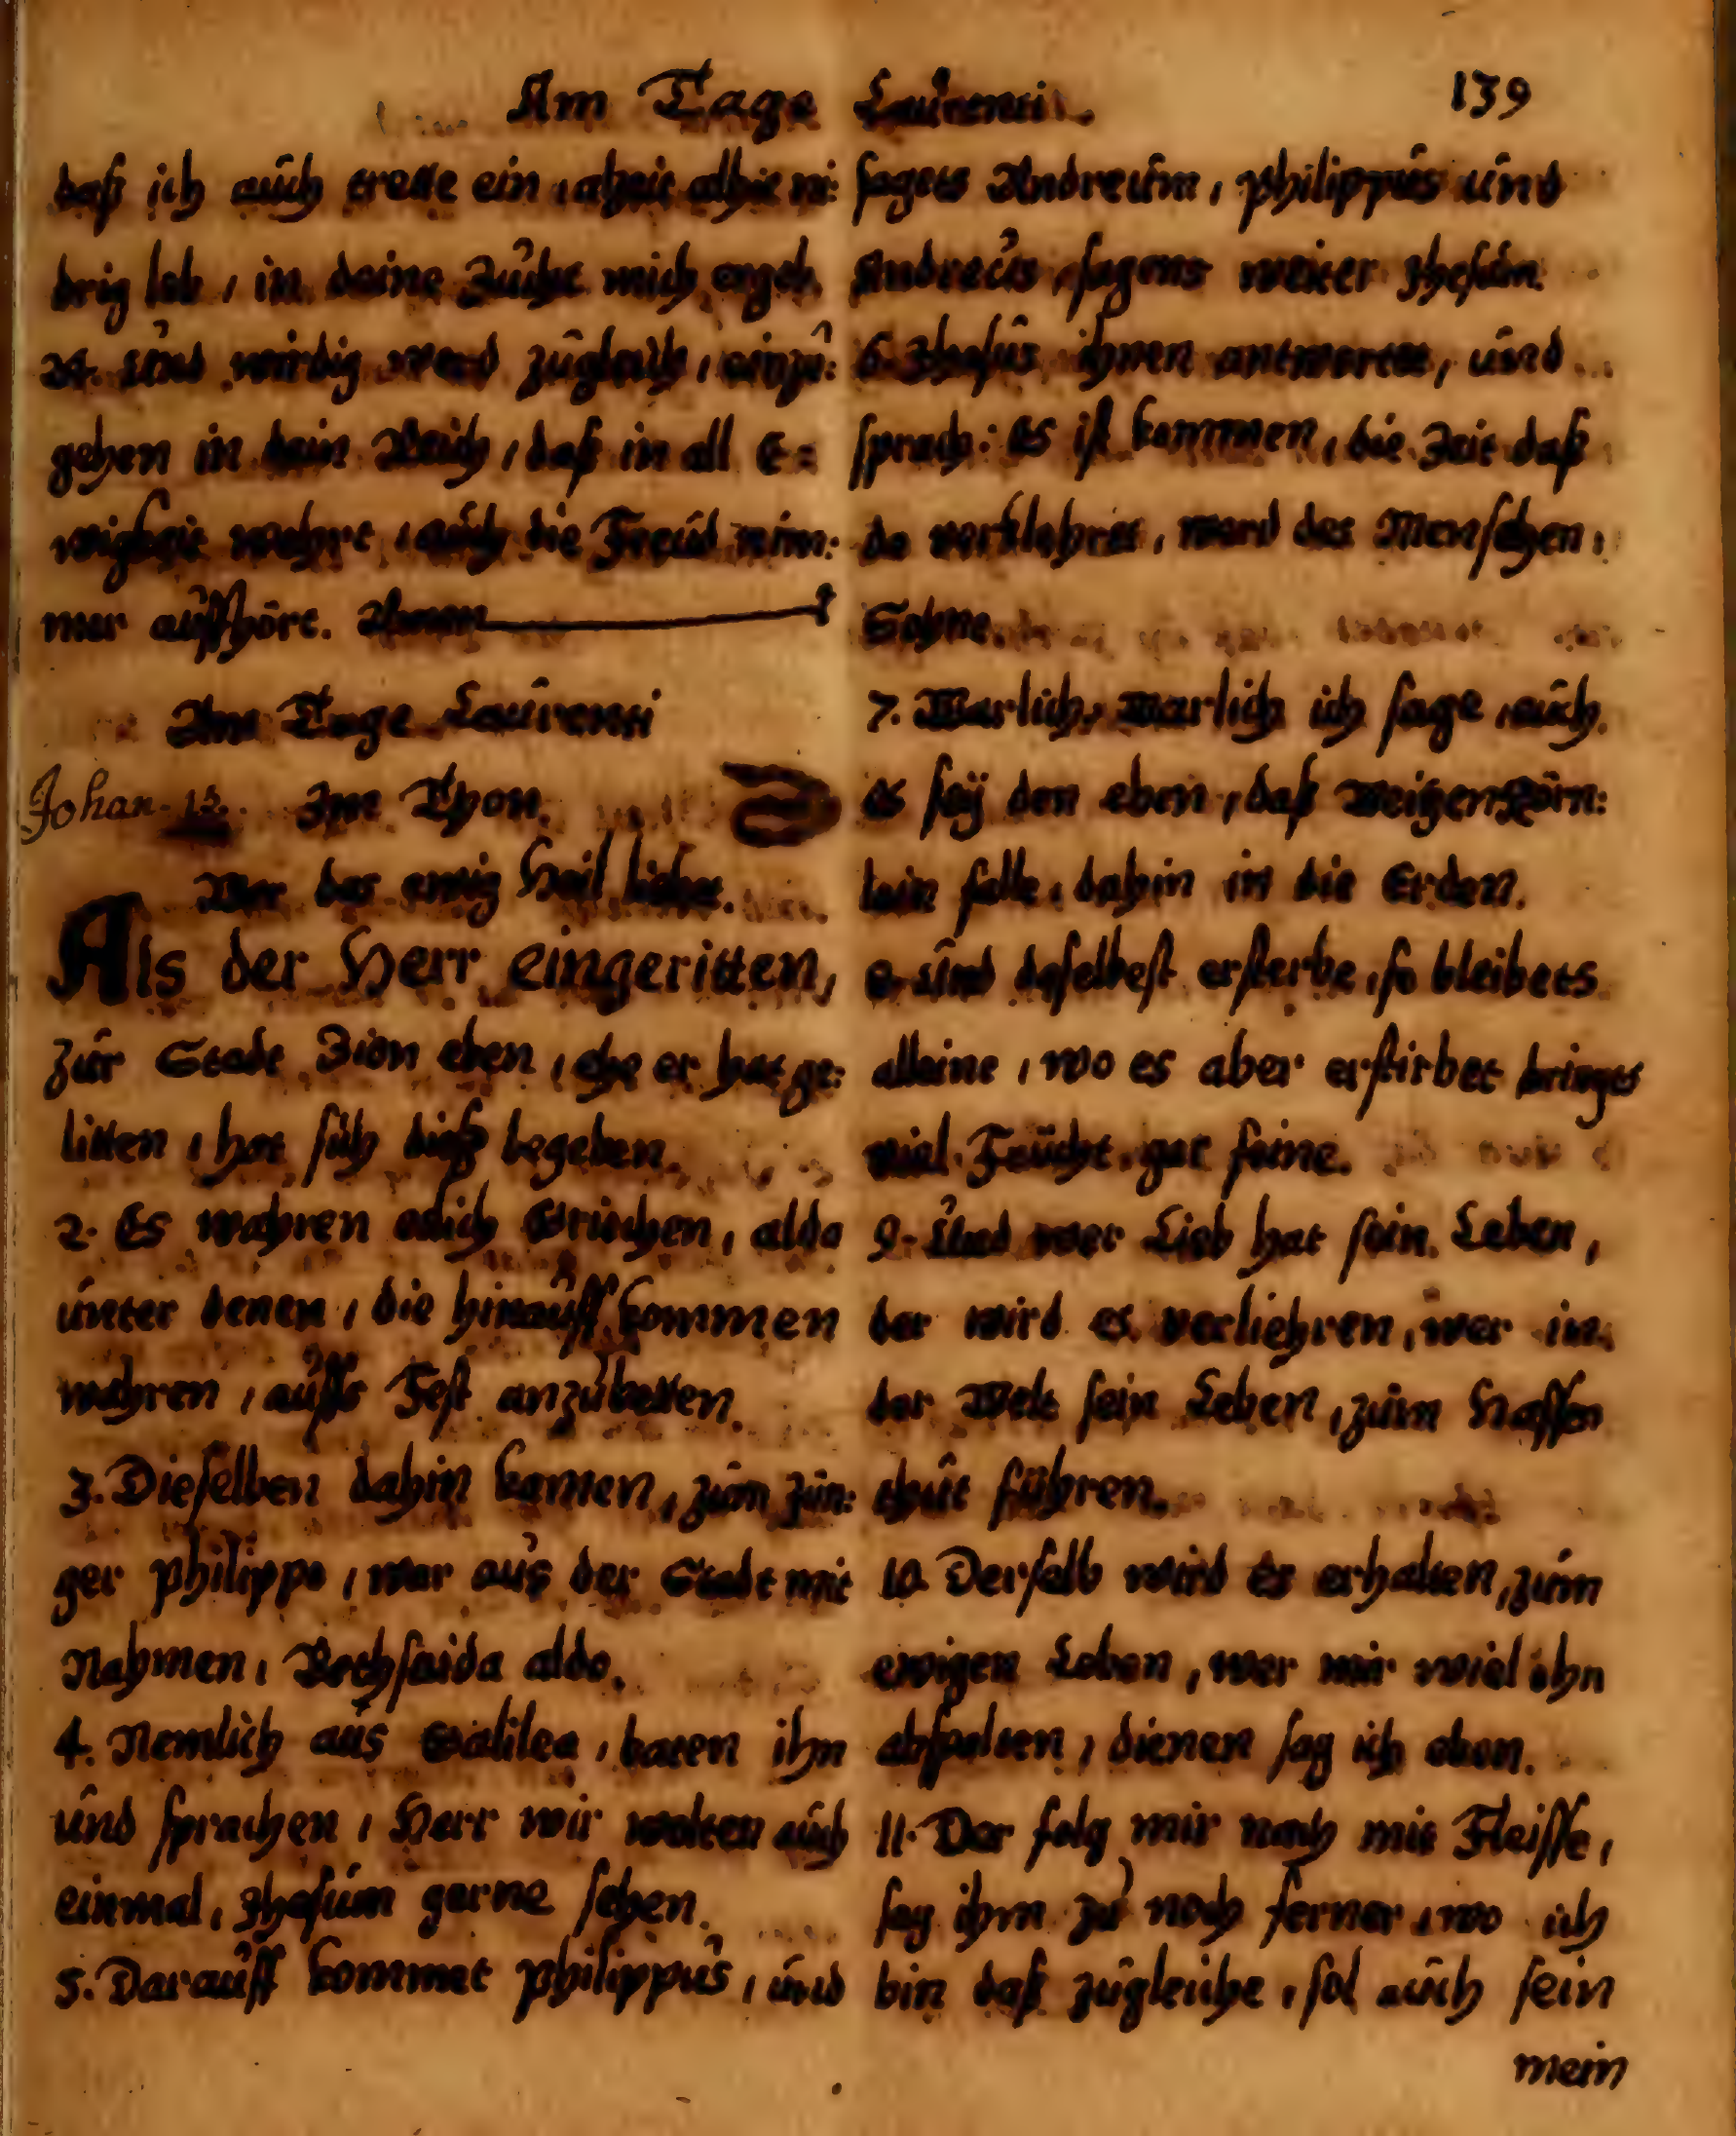 Am Tage Laurenti. 139
daß ich auch trette ein, alhie ni:
drig leb, in deine Zucht mich ergeb.
24. Und wirdig werd zugleich, einzu:
gehen in dein Reich, daß in all E=
wigkeit wehrt, auch die Freud nim:
mer auffhört. Amen
Am Tage Laurenti
Johan. 12. Im Thon.
Wer das ewig Heil liebet.
Als der Herr eingeritten,
zur Stadt Zion eben, ehe er hat ge:
litten, hat sich dieß begeben.
2. Es wahren etlich Griechen, alda
unter denen, die hinauff kommen
wahren, auffs Fest anzubetten.
3. Dieselben dahin kamen, zum Jün:
ger Philippo, war aus der Stadt mit
Nahmen, Bethsaida aldo.
4. Nemlich aus Galilea, baten ihn
und sprachen, Herr wir wolten auch
einmal, Jhesum gerne sehen.
5. Darauff kommet Philippus, und
sagets Andreum, Philippus und
Andreus, sagens weiter Jhesum.
6. Jhesus ihnen antwortet, und
sprach: Es ist kommen, die Zeit daß
da verklehret, werd des Menschen,
Sohne.
7. Warlich, Warlich ich sage, euch
es sey den eben, daß Weitzenkörn:
lein falle, dahin in die Erden.
8. und daselbest ersterbe, so bleibets
alleine, wo es aber erstirbet bringts
viel Frücht, gar feine.
9. Und wer Lieb hat sein Leben,
der wird es verliehren, wer in
der Welt sein Leben, zum Hassen
thut führen.
10. Derselb wird es erhalten, zum
ewigen Leben, wer mir wiel ohn
abspalten, dienen sag ich eben.
11. Der folg mir nach mit Fleisse,
sag ihm zu noch ferner, wo ich
bin daß zugleiche, sol auch sein
mein